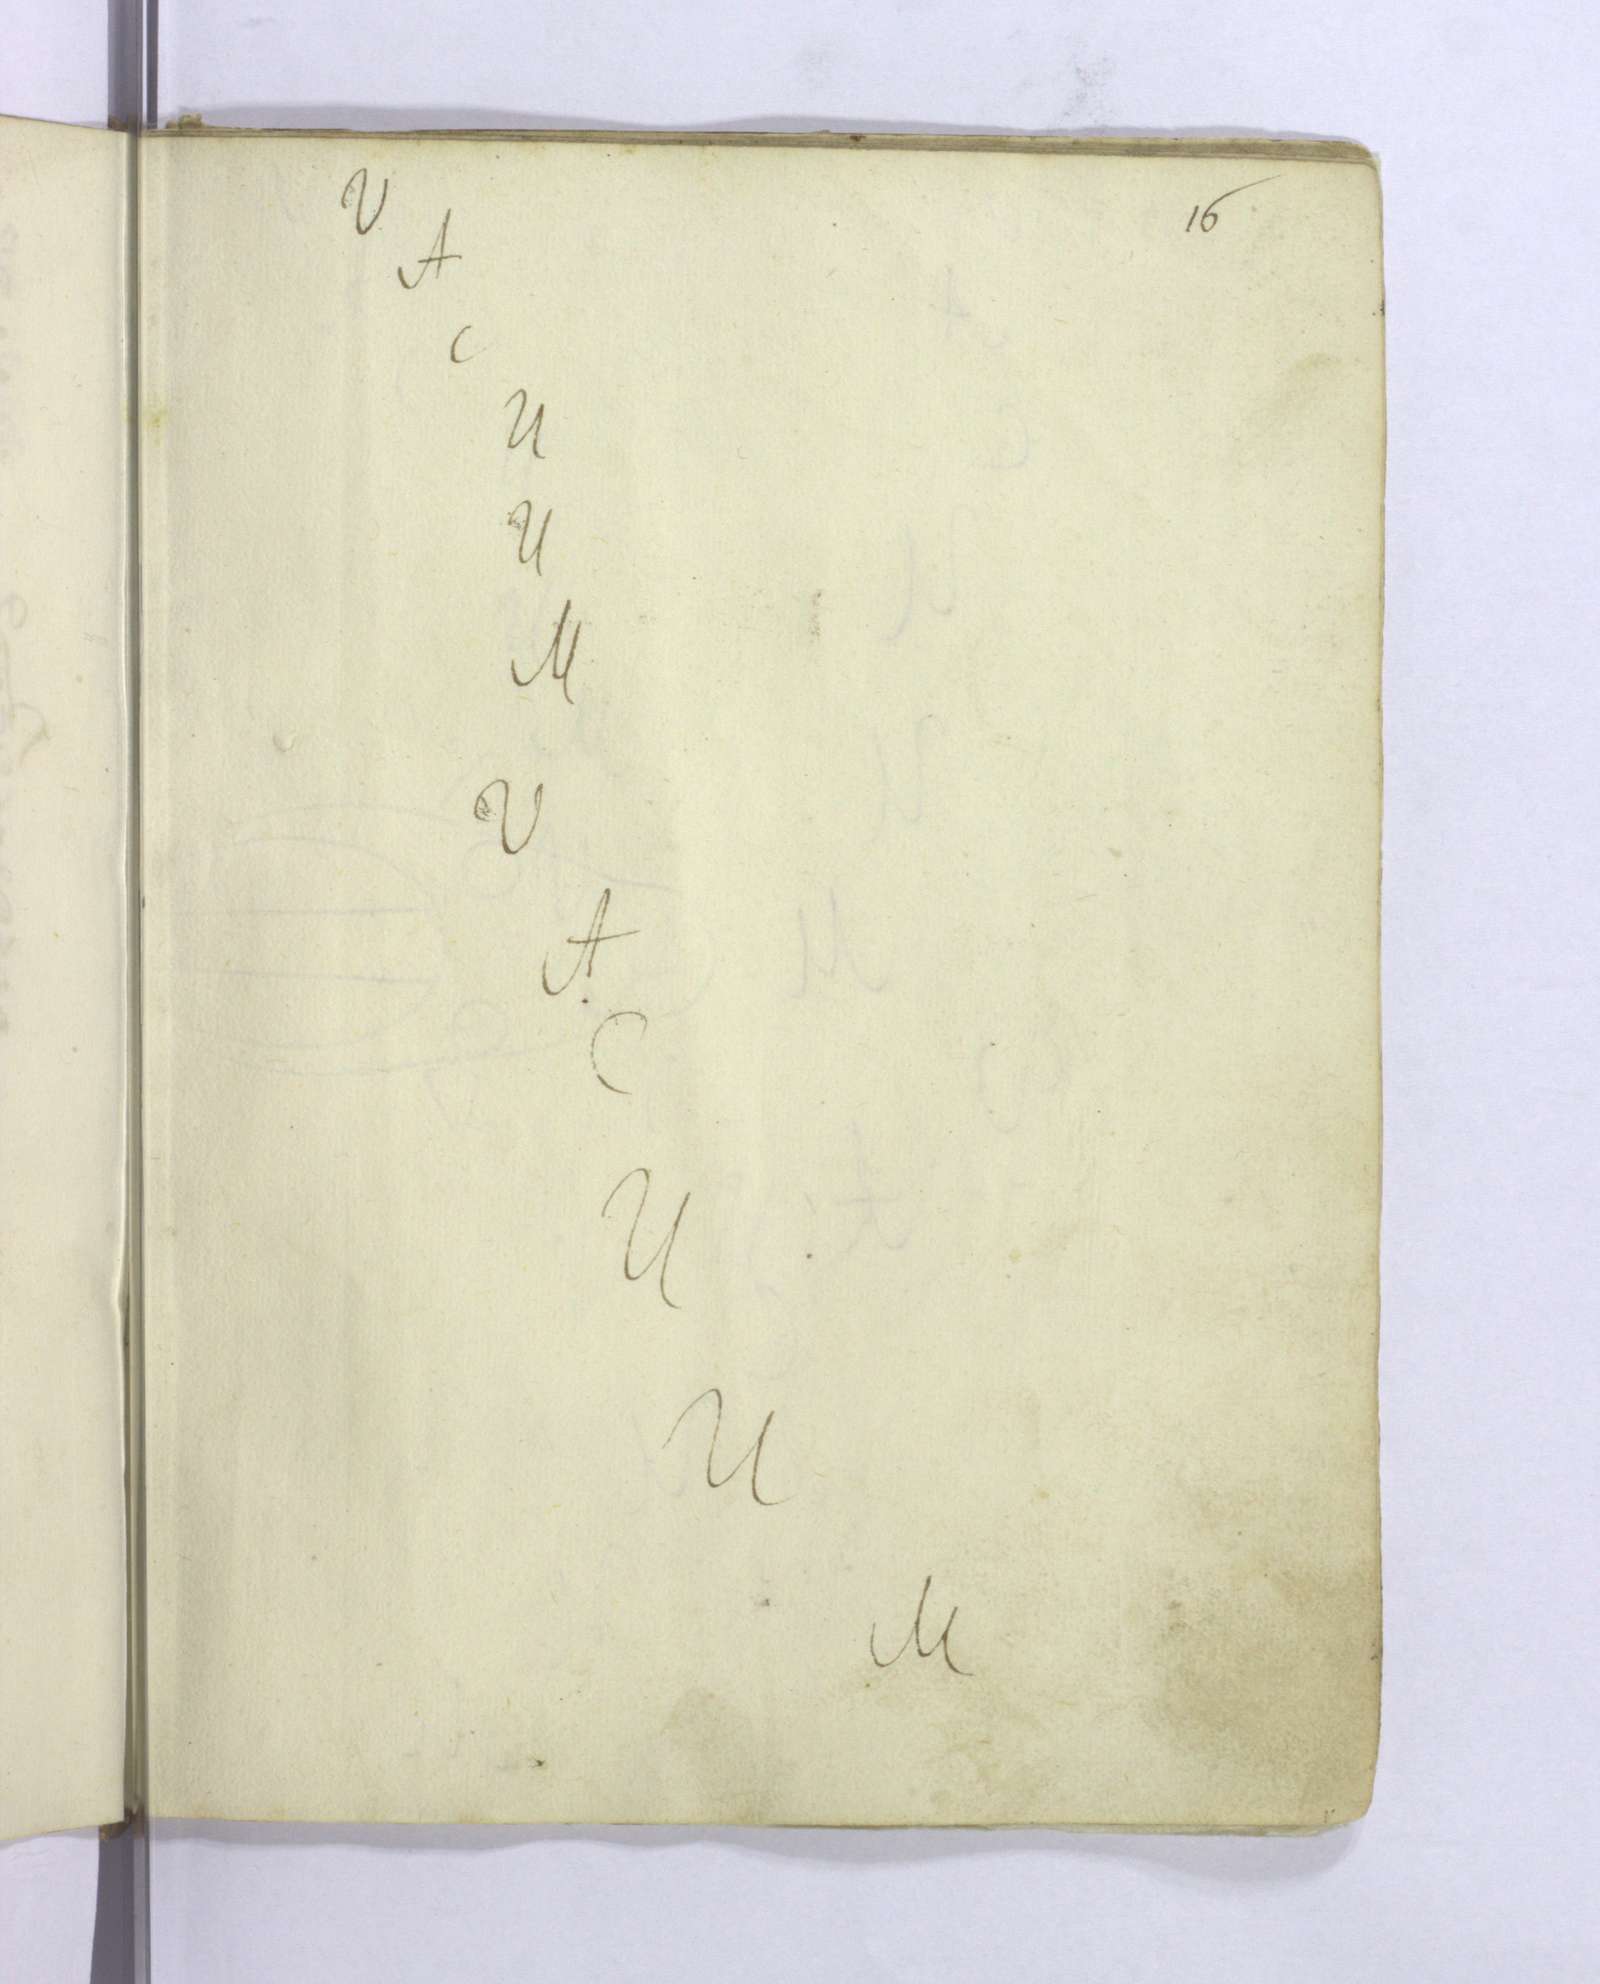 16
V
A
c
U
U
M
V
A
C
U
U
M